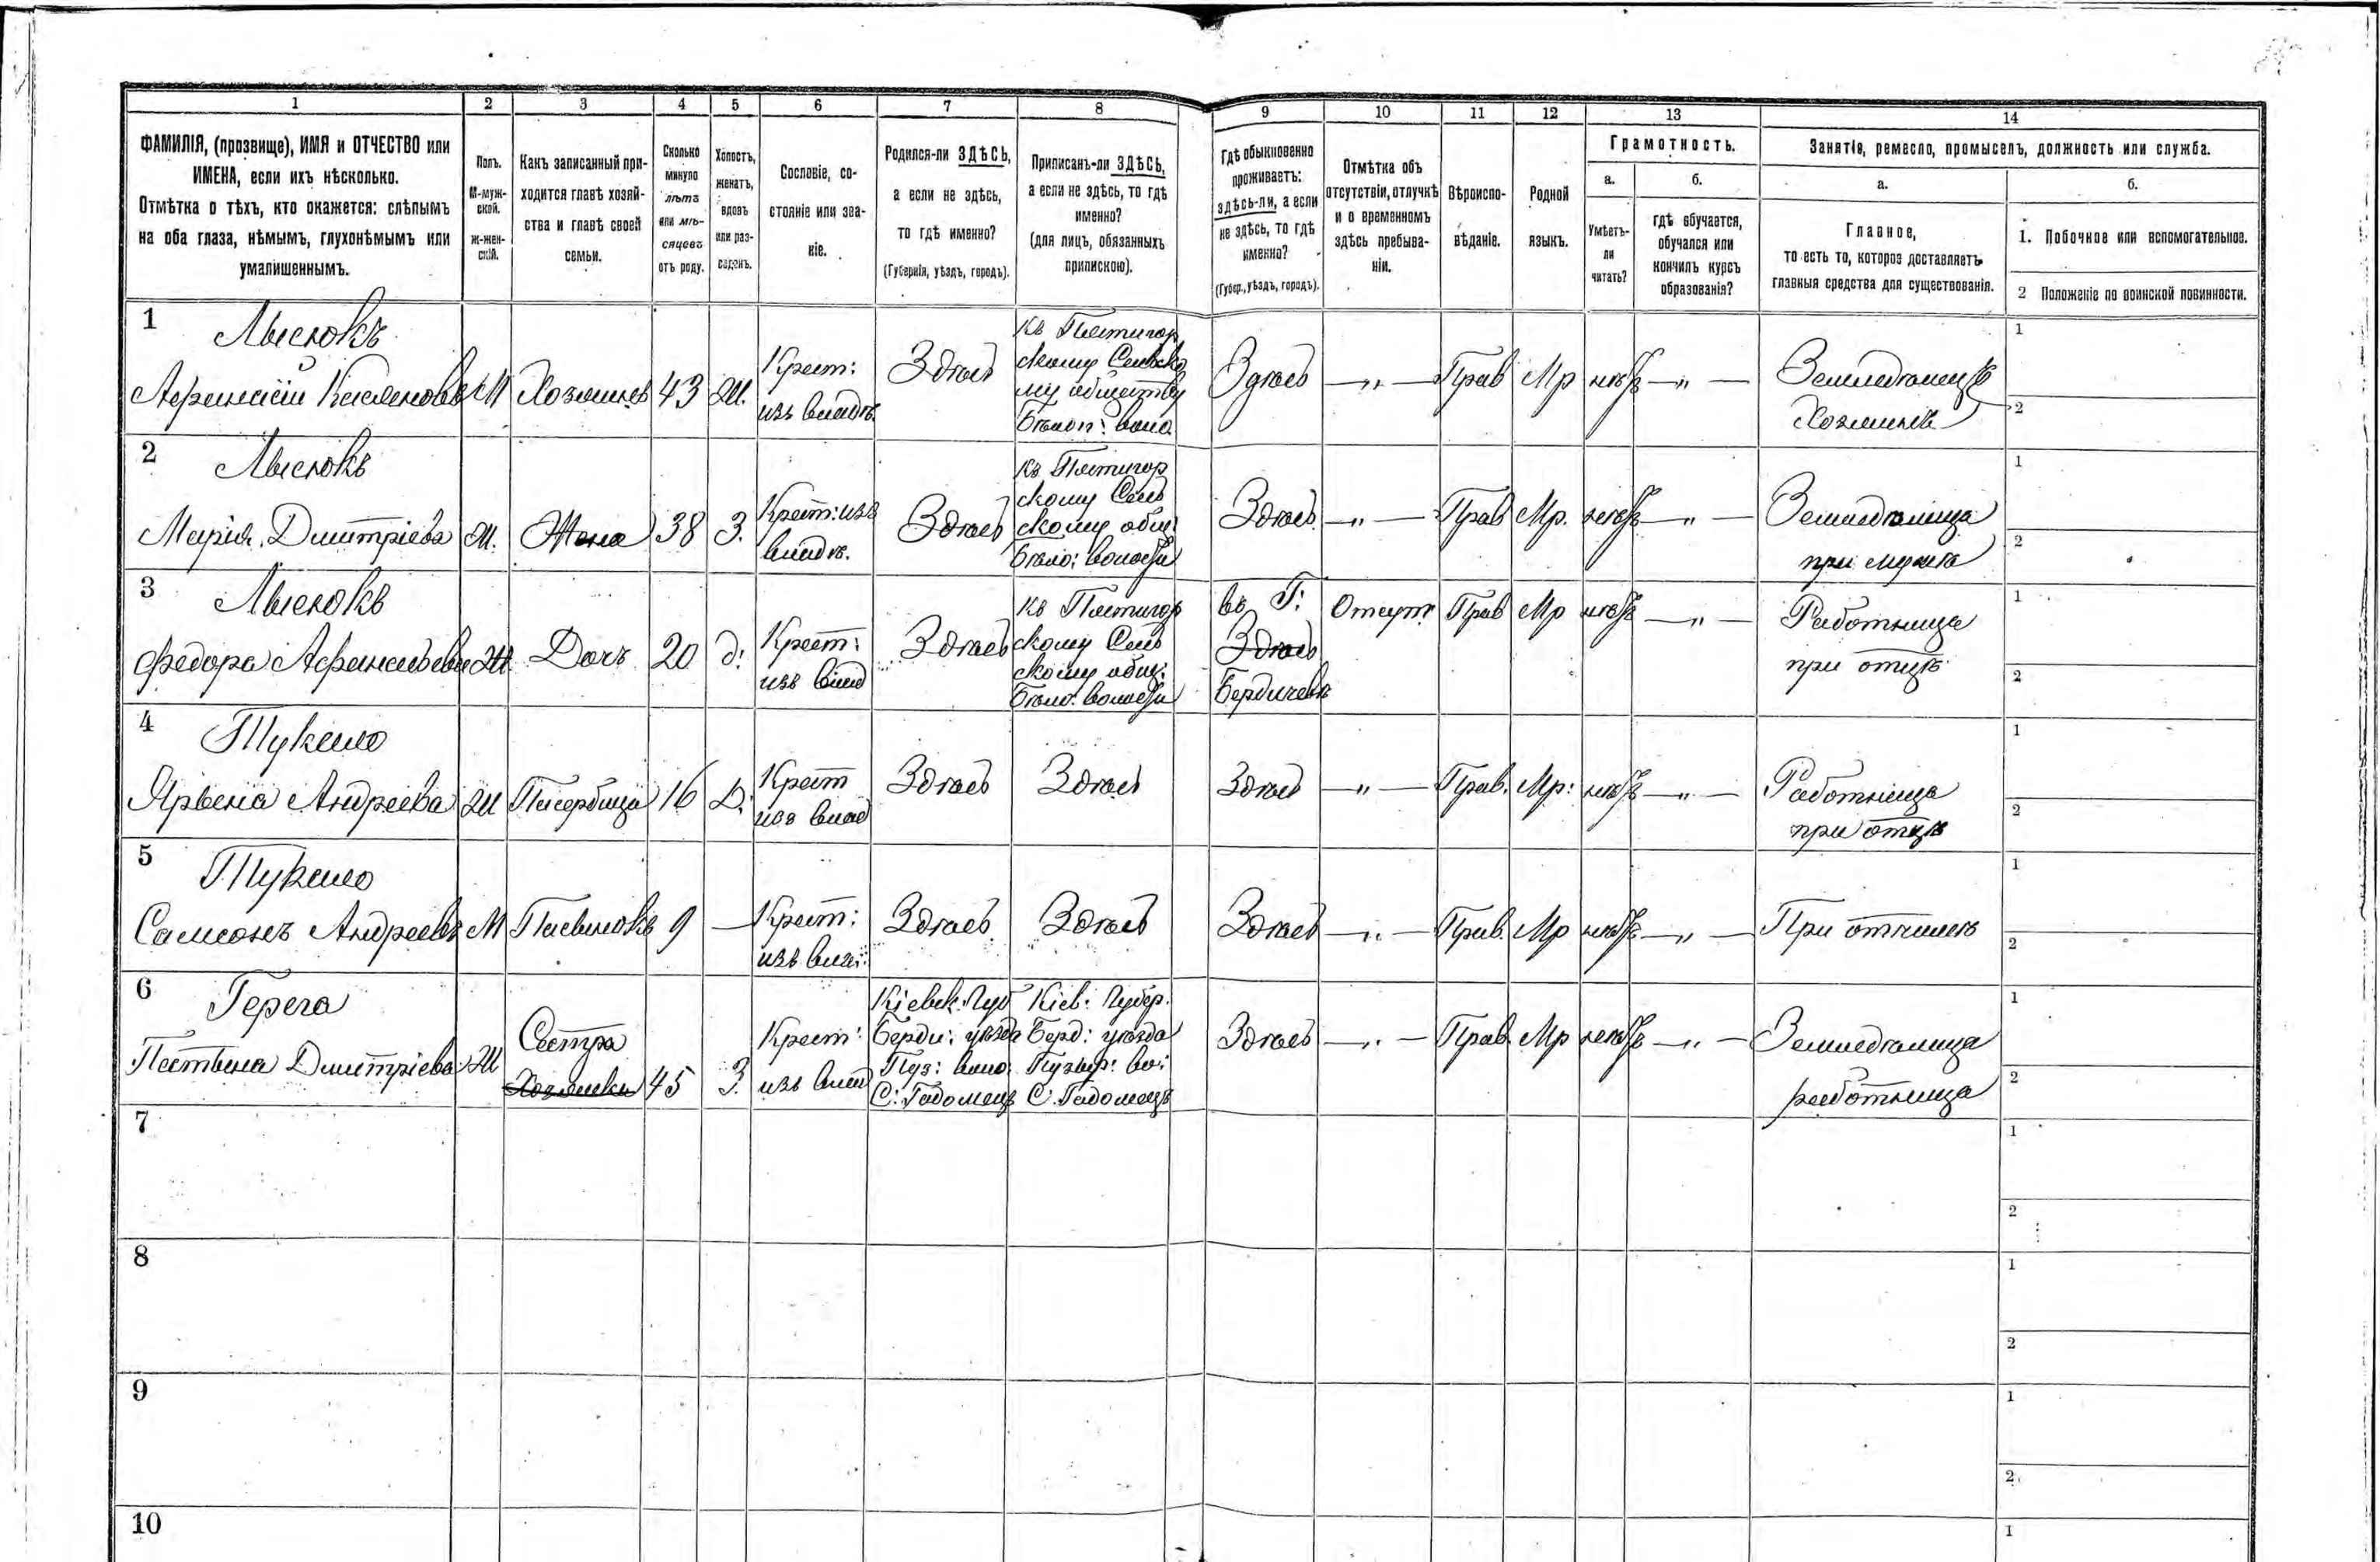 1 2 3 4 5 6 7 8 9 10 11 12 13 14
ФАМИЛІЯ, (прозвище), ИМЯ и ОТЧЕСТВО или
ИМЕНА, если ихъ нѣсколько.
Отмѣтка о тѣхъ, кто окажется: слѣпымъ
на оба глаза, нѣмымъ, глухонѣмымъ или
умалишеннымъ.
Полъ.
М-муж-
ской.
ж-жен-
скій.
Какъ записанный при-
ходится главѣ хозяй-
ства и главѣ своей
семьи.
Сколько
минуло
лѣтъ
или мѣ-
сяцевъ
отъ роду.
Холостъ,
женатъ,
вдовъ
или раз-
веденъ.
Сословіе, со-
стояніе или зва-
ніе.
Родился-ли ЗДѢСЬ,
а если не здѣсь,
то гдѣ именно?
(Губернія, уѣздъ, городъ).
Приписанъ-ли ЗДѢСЬ,
а если не здѣсь, то гдѣ
именно?
(для лицъ, обязанныхъ
припискою).
Гдѣ обыкновенно
проживаетъ:
здѣсь-ли, а если
не здѣсь, то гдѣ
именно?
(Губер., уѣздъ, городъ).
Отмѣтка объ
отсутствіи, отлучкѣ
и о временномъ
здѣсь пребыва-
ніи.
Вѣроиспо-
вѣданіе.
Родной
языкъ.
Грамотность.
а.
Умѣетъ-
ли
читать?
б.
гдѣ обучается,
обучался или
кончилъ курсъ
образованія?
Занятіе, ремесло, промыселъ, должность или служба.
а.
Главное,
то есть то, которое доставляетъ
главныя средства для существованія.
б.
1. Побочное или вспомогательное.
2 Положеніе по воинской повинности.
1
Лысюкъ
Афанасій М Хозяинъ 43 Ж.
Крест:
изъ владѣ.
Здѣсь
Къ Пятигор
скому Сельско
му обществу
Бѣлоп: воло
Здѣсь — „ — Прав Мр нѣтъ — „ —
Земледѣлецъ
Хозяинъ
1
2
2
Лысюкъ
Марія Дмитріева Ж. Жена 38 З.
Крест: изъ
владѣ.
Здѣсь
Къ Пятигор
скому Сель
скому общ:
Бѣло: волости
Здѣсь — „ — Прав Мр. нѣтъ — „ —
Земледѣлица
при мужѣ
1
2
3
Лысюкъ
Федора Афанасьева Ж Дочь 20 д:
Крест:
изъ влад
Здѣсь
Къ Пятигор
скому Сель
скому общ:
Бѣло: волости
въ Г:
Здѣсь
Бердичевѣ
Отсут Прав Мр нѣтъ — „ —
Работница
при отцѣ
1
2
4
Андреева Ж Пасербица 16 Д.
Крест
изъ влад
Здѣсь Здѣсь Здѣсь — „ — Прав. Мр: нѣтъ — „ —
Работница
при отцѣ
1
2
5
Самсонъ Андреевъ М Пасынокъ 9 —
Крест:
изъ вла:
Здѣсь Здѣсь Здѣсь — „ — Прав. Мр нѣтъ — „ —
При отчимѣ
1
2
6
Герега
Дмитріева Ж
Сестра
45 З.
Крест:
изъ влад
Кіевск: Губ
Берди: уѣзда
Пуз: воло:
С: Гадомецъ
Кіев: Губер.
Берд: уѣзда
Пузыр: во:
С. Гадомецъ
Здѣсь — „ — Прав Мр нѣтъ — „ —
Земледѣлица
работница
1
2
7
1
2
8
1
2
9
1
2
10
1